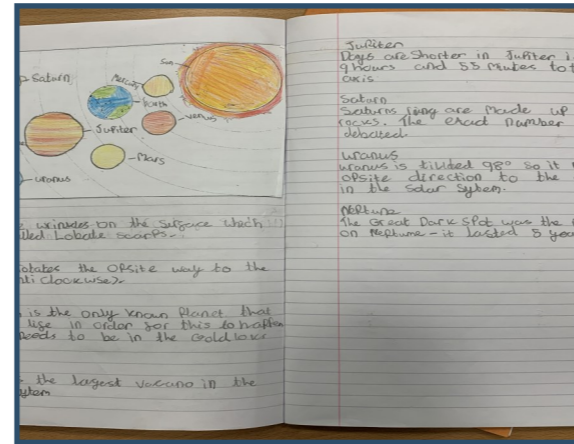 Saturn
Sun
Mercury
Earth
Venus
Jupiter
Mars
Uranus
winkles on the surgace which
lled Lobate scarps.
otates the oPsite way to the
nti clockwise).
is the only known Planet that
lige in order for this to haPPen
needs to be in the Goldilocks
the largest vacano in the
ytem
JuPiter
Days are Shorter in JuPiter i
9 hours and 55 Minutes to t
axis.
Saturn
Saturns ring are Made up
rocks. The exact number
debated.
Uranus
uranus is tillted 98° so it
oPsite direction to the
in the Solar Sytem.
NePtune
The Great Dark Spot was the
on NePtune - it lasted 5 yea